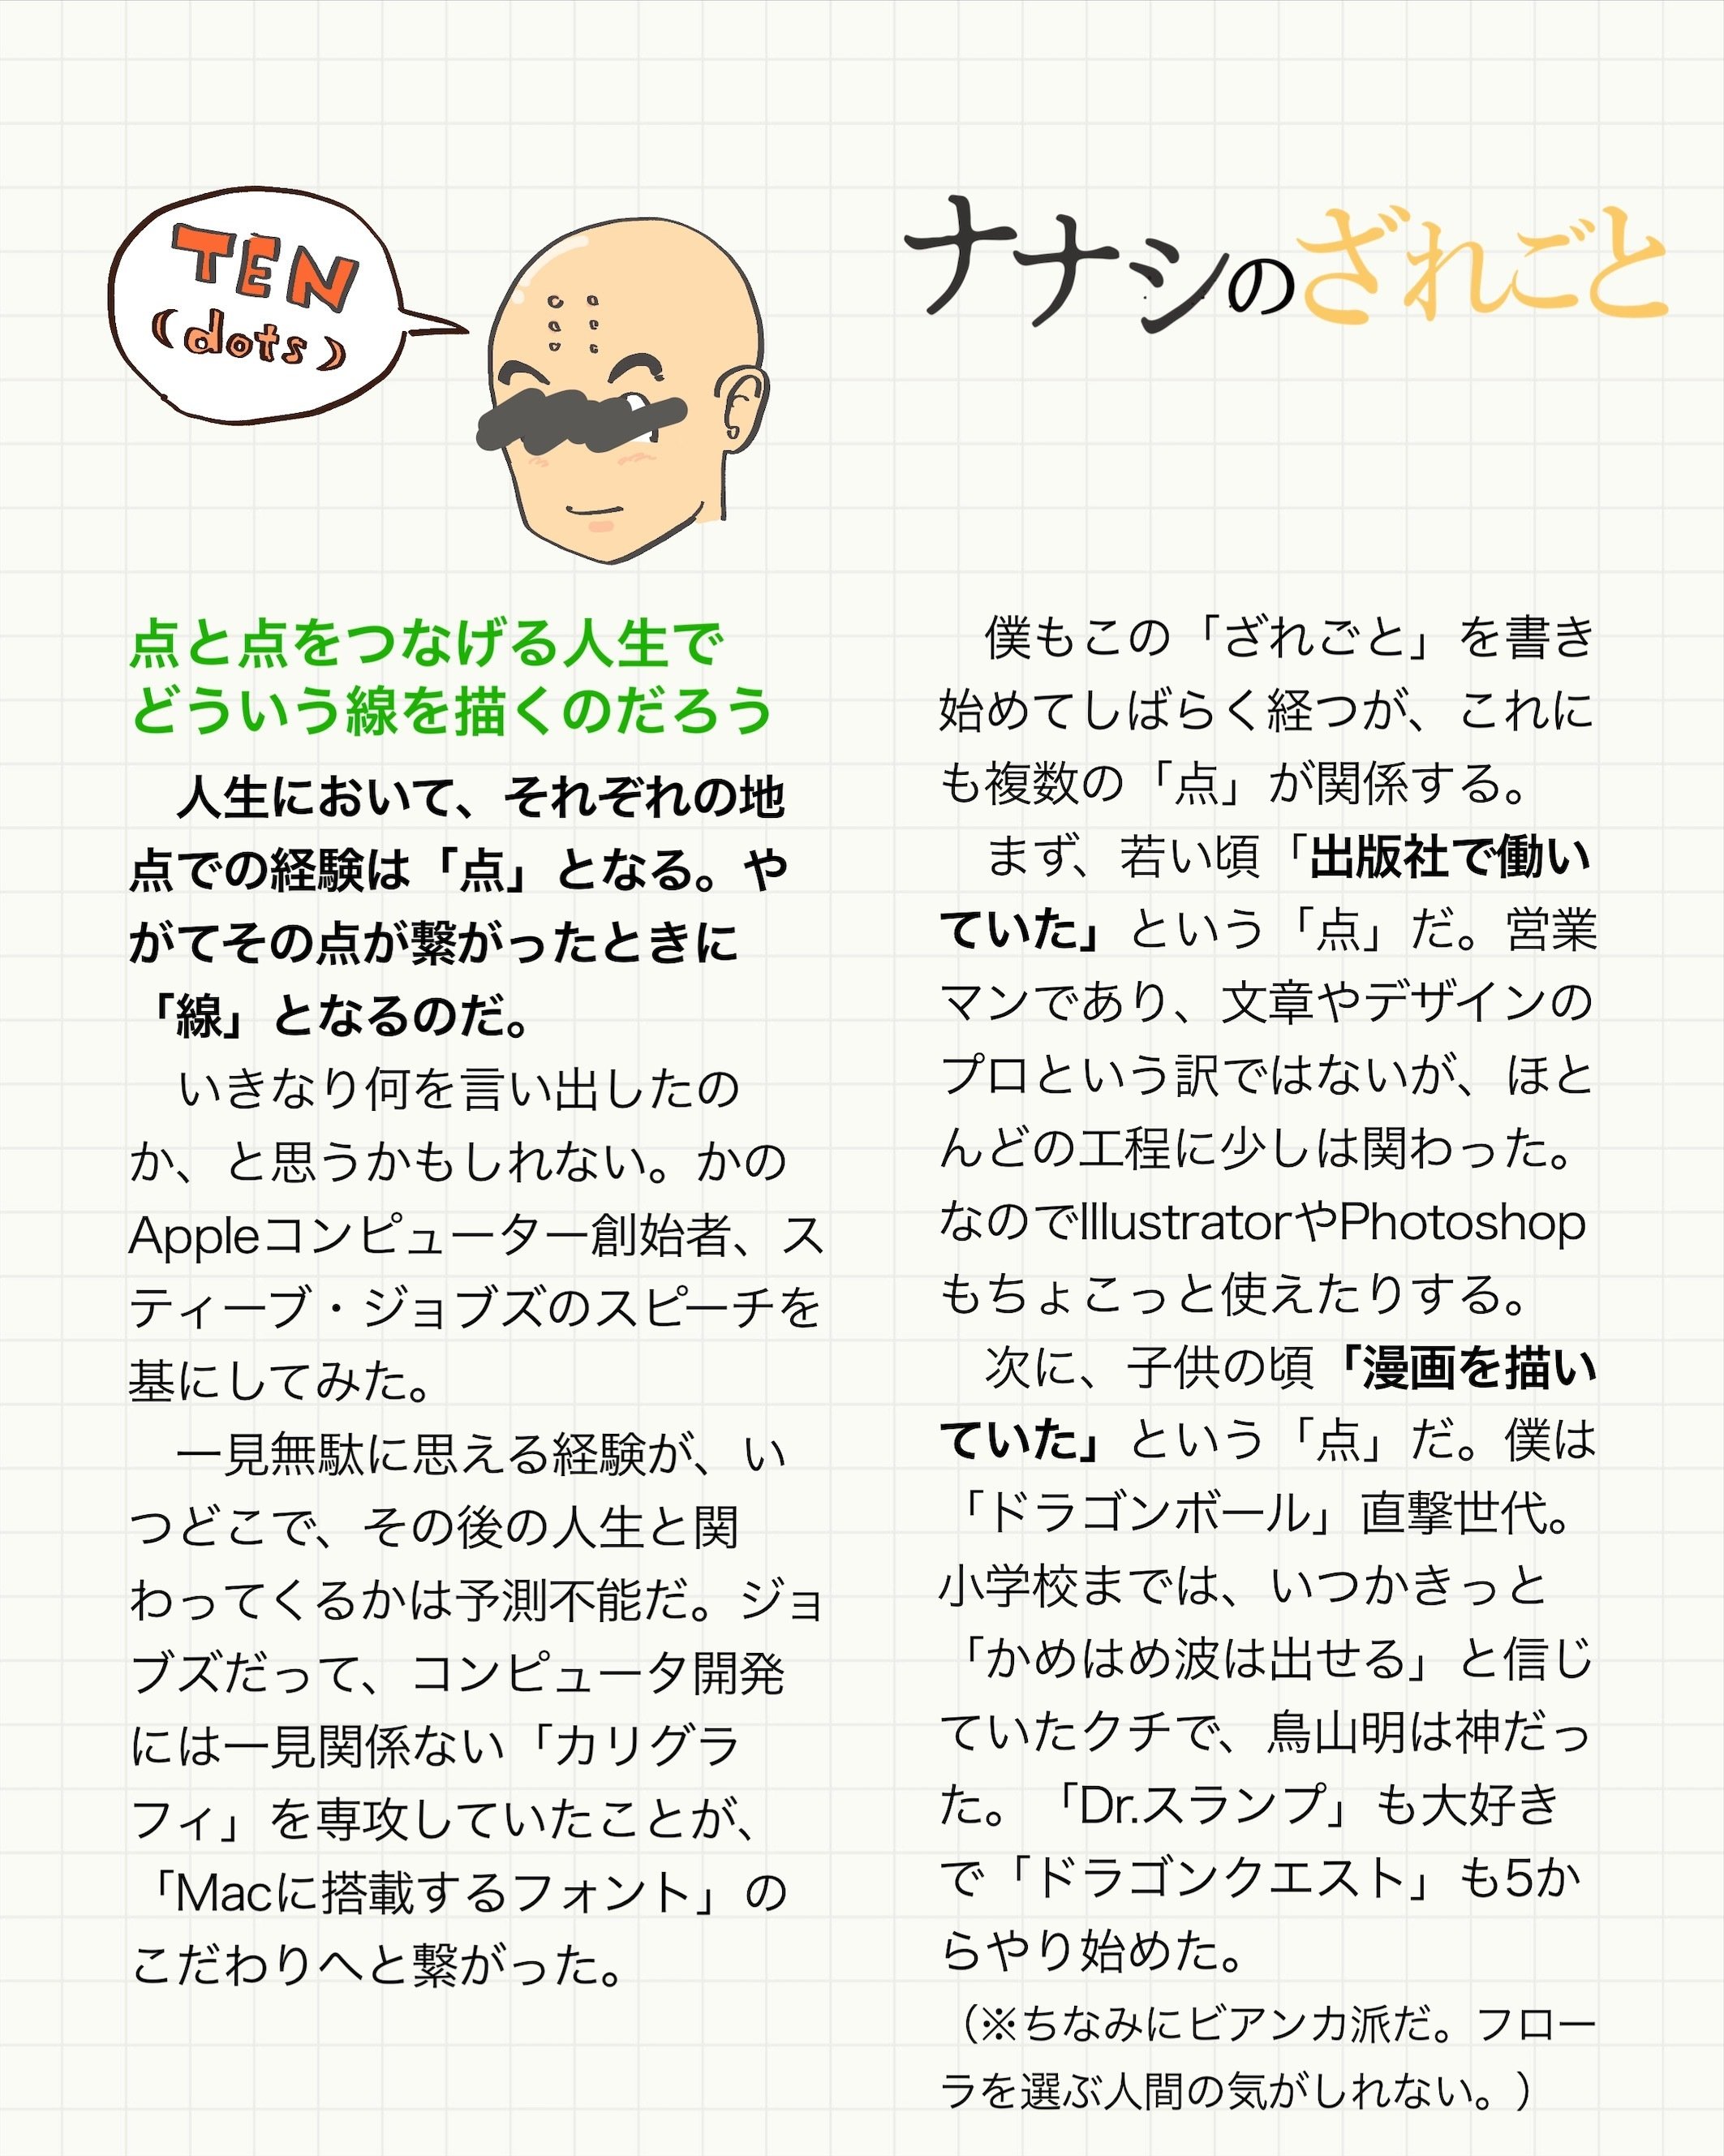 ナナシのざれごと
TEN
(dots)
点と点をつなげる人生で
どういう線を描くのだろう
　人生において、それぞれの地
点での経験は「点」となる。や
がてその点が繋がったときに
「線」となるのだ。
　いきなり何を言い出したの
か、と思うかもしれない。かの
Appleコンピューター創始者、ス
ティーブ・ジョブズのスピーチを
基にしてみた。
　一見無駄に思える経験が、い
つどこで、その後の人生と関
わってくるかは予測不能だ。ジョ
ブズだって、コンピュータ開発
には一見関係ない「カリグラ
フィ」を専攻していたことが、
「Macに搭載するフォント」の
こだわりへと繋がった。
　僕もこの「ざれごと」を書き
始めてしばらく経つが、これに
も複数の「点」が関係する。
　まず、若い頃「出版社で働い
ていた」という「点」だ。営業
マンであり、文章やデザインの
プロという訳ではないが、ほと
んどの工程に少しは関わった。
なのでIllustratorやPhotoshop
もちょこっと使えたりする。
　次に、子供の頃「漫画を描い
ていた」という「点」だ。僕は
「ドラゴンボール」直撃世代。
小学校までは、いつかきっと
「かめはめ波は出せる」と信じ
ていたクチで、鳥山明は神だっ
た。「Dr.スランプ」も大好き
で「ドラゴンクエスト」も5か
らやり始めた。
（※ちなみにビアンカ派だ。フロー
ラを選ぶ人間の気がしれない。）